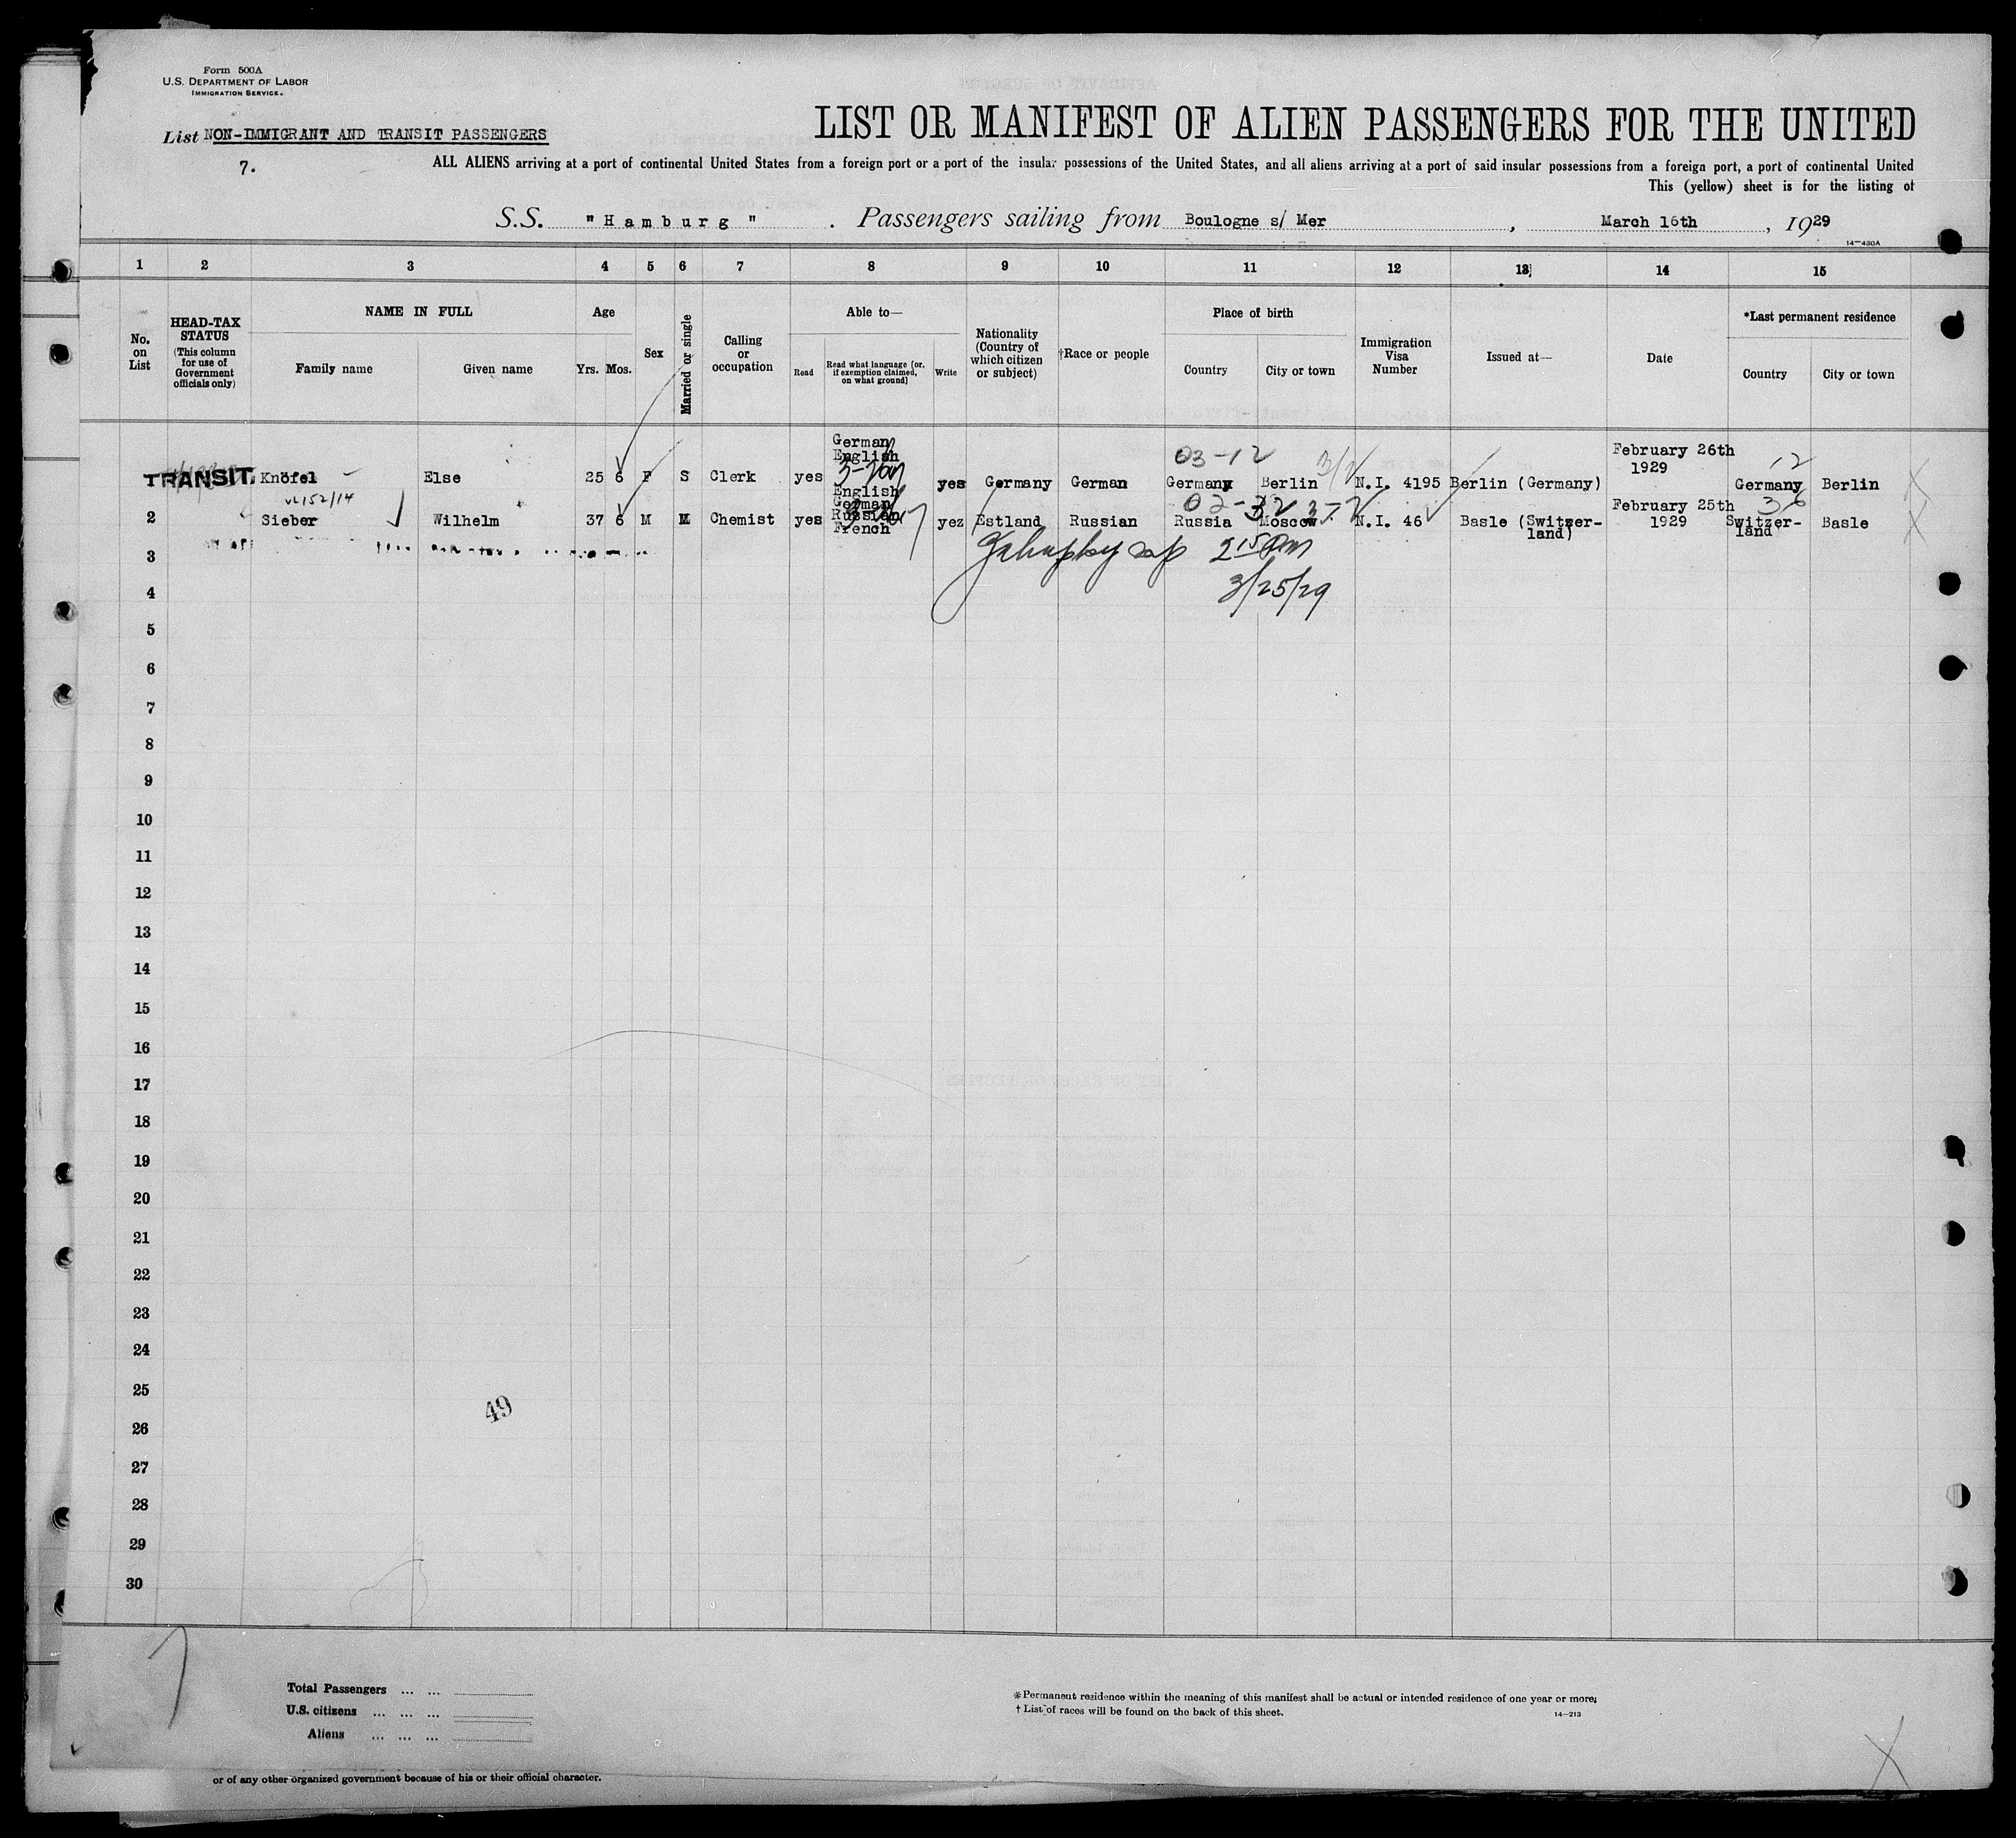 Form 500A
U.S. DEPARTMENT OF LABOR
IMMIGRATION SERVICE.
List NON-IMMIGRANT AND TRANSIT PASSENGERS
7.
LIST OR MANIFEST OF ALIEN PASSENGERS FOR THE UNITED
ALL ALIENS arriving at a port of continental United States from a foreign port or a port of the insular possessions of the United States, and all aliens arriving at a port of said insular possessions from a foreign port, a port of continental United
This (yellow) sheet is for the listing of
S.S. "Hamburg". Passengers sailing from Boulogne s/ Mer, March 16th, 1929
14-430A
1 2 3 4 5 6 7 8 9 10 11 12 13 14 15
No. on List
HEAD-TAX STATUS (This column for use of Government officials only)
NAME IN FULL
Family name Given name
Age
Yrs. Mos.
Sex
Married or single
Calling or occupation
Able to—
Read
Read what language [or, if exemption claimed, on what ground]
Write
Nationality (Country of which citizen or subject)
†Race or people
Place of birth
Country City or town
Immigration Visa Number
Issued at—
Date
*Last permanent residence
Country City or town
03-12
TRANSIT Knöfel Else 25 6 F S Clerk yes German English yes Germany German Germany Berlin N.I. 4195 Berlin (Germany) February 26th 1929 12 Germany Berlin
02-32
2 Sieber Wilhelm 37 6 M M Chemist yes English German Russian French yez Estland Russian Russia Moscow N.I. 46 Basle (Switzerland) February 25th 1929 36 Switzerland Basle
3
2 15 Pm
4
3/25/29
5
6
7
8
9
10
11
12
13
14
15
16
17
18
19
20
21
22
23
24
25
49
26
27
28
29
30
Total Passengers ... ...
U.S. citizens ... ... ...
Aliens ... ... ...
*Permanent residence within the meaning of this manifest shall be actual or intended residence of one year or more.
†List of races will be found on the back of this sheet.
14-213
or of any other organized government because of his or their official character.